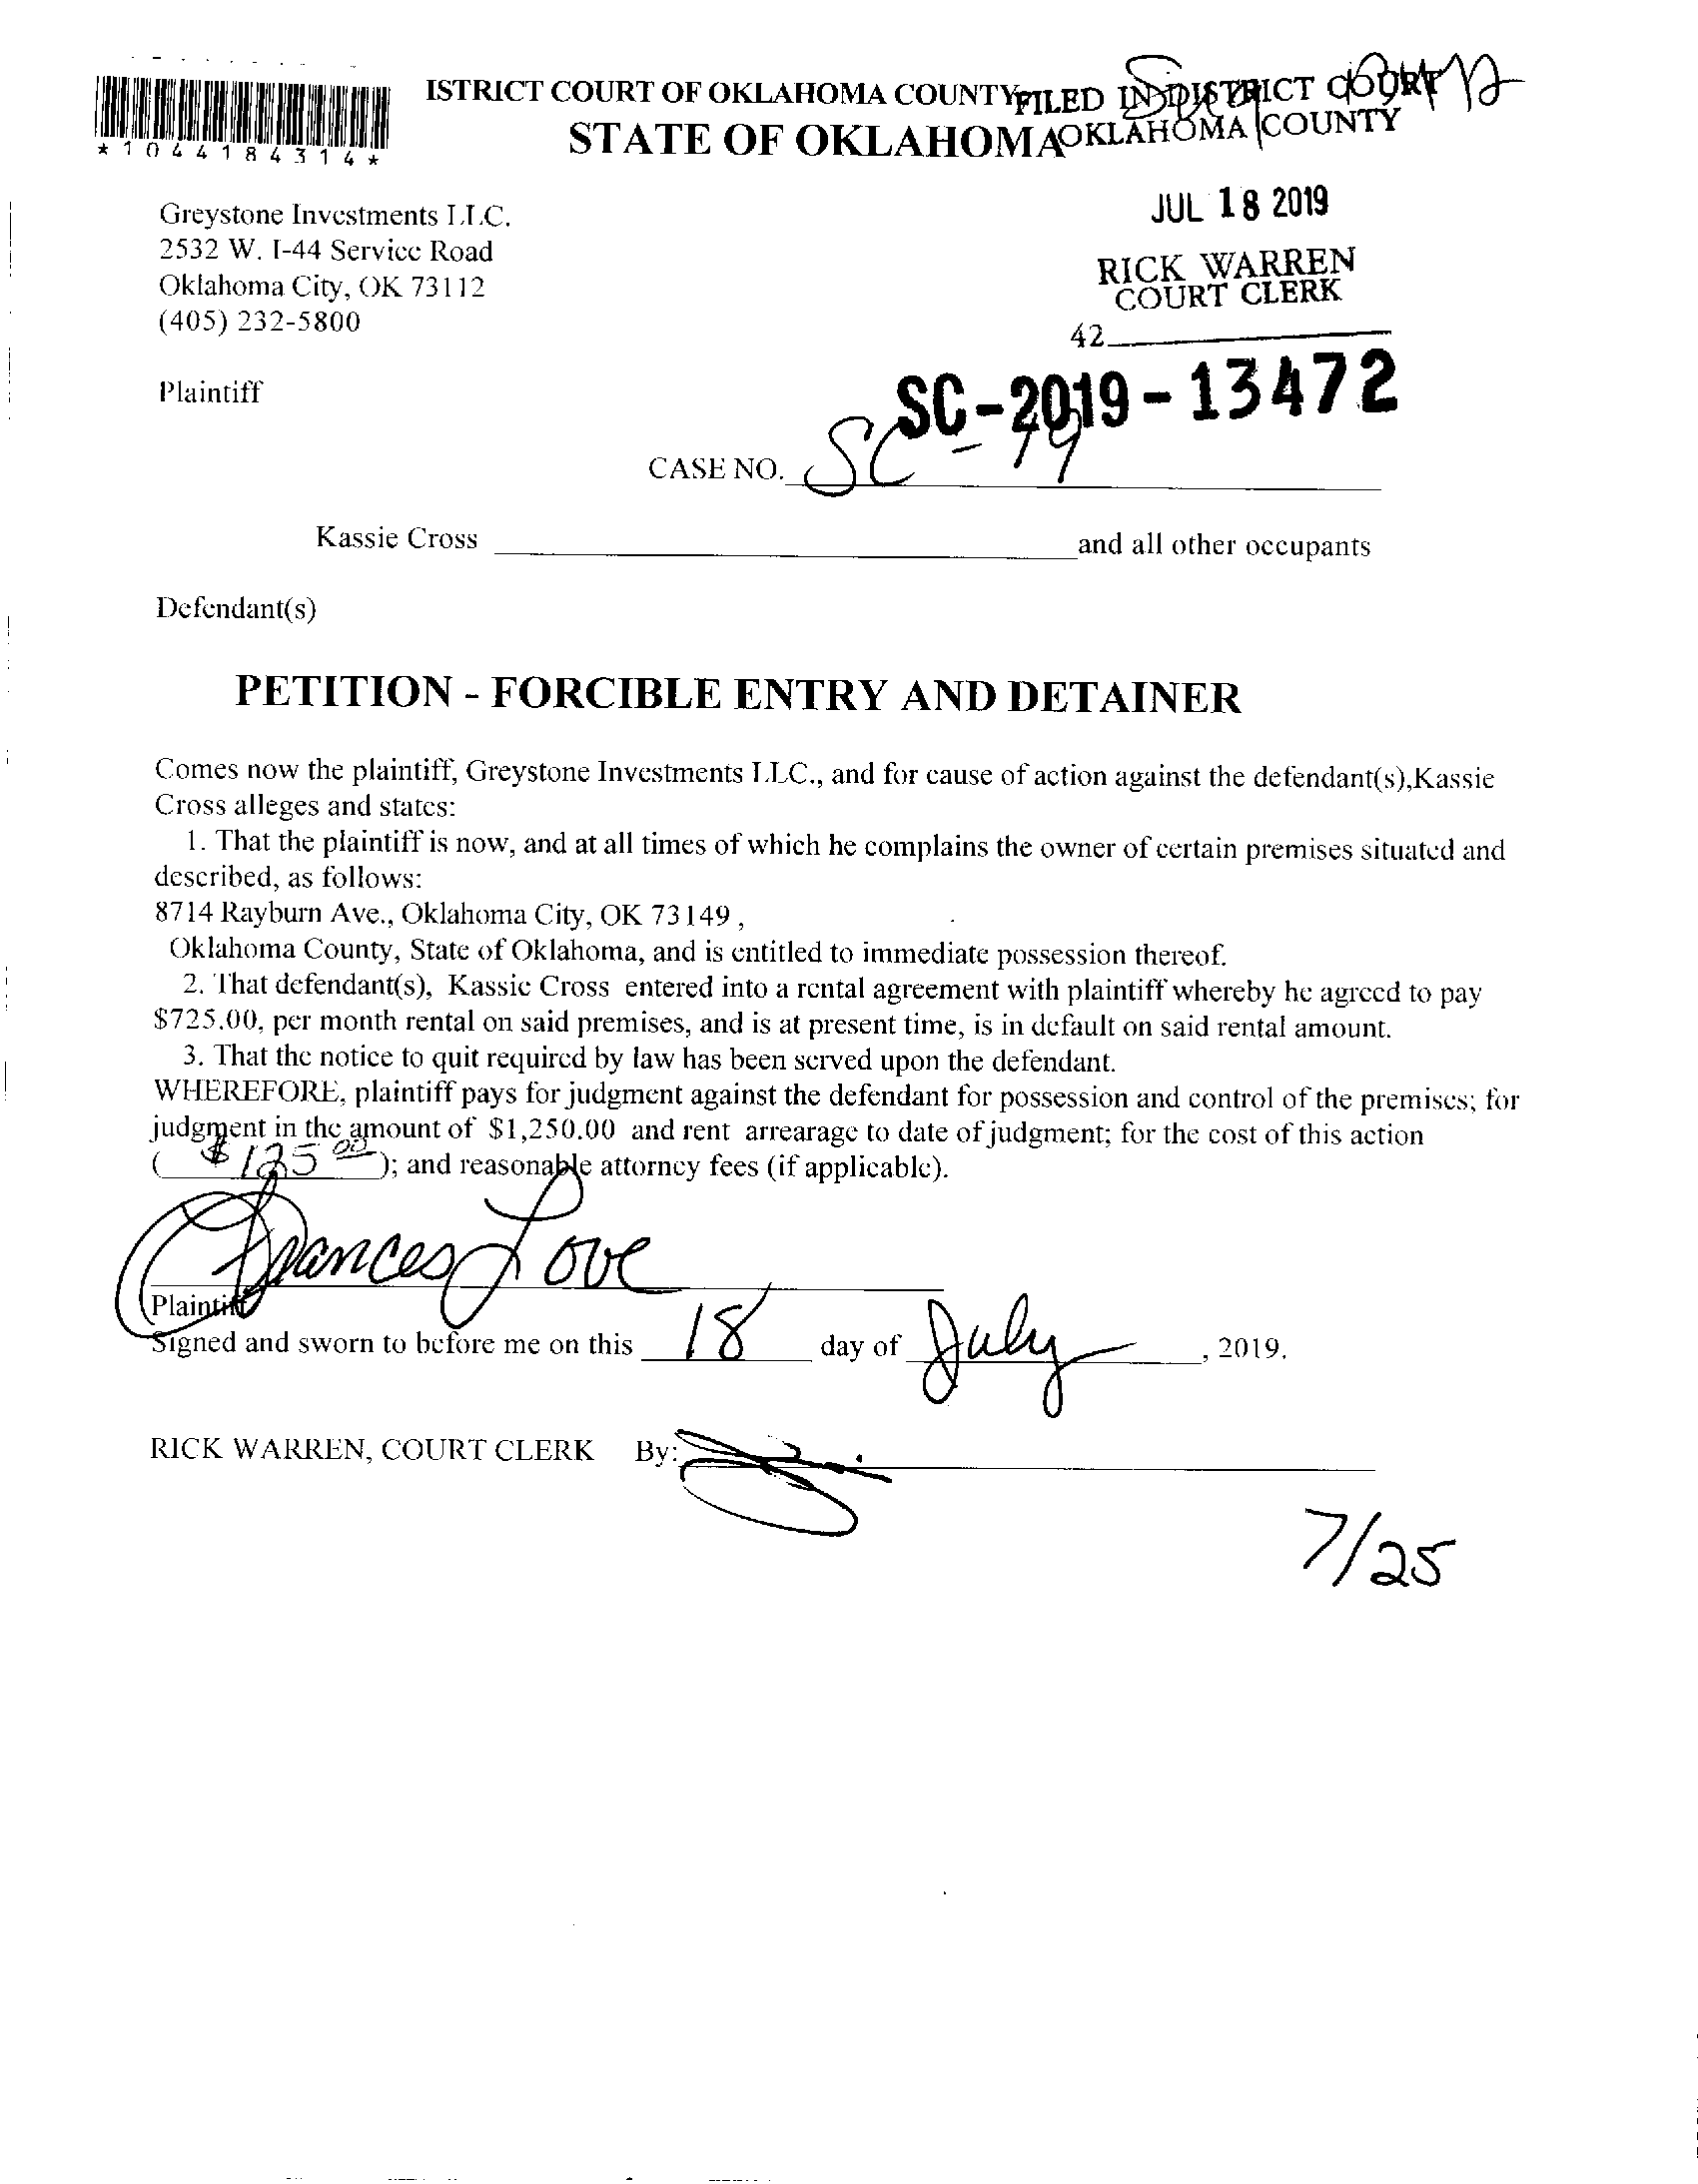 ISTRICT COURT OF OKLAHOMA COUNTY
STATE OF OKLAHOMA
FILED IN DISTRICT COURT
OKLAHOMA COUNTY
*1044184314*
JUL 18 2019
RICK WARREN
COURT CLERK
42
Greystone Investments LLC.
2532 W. I-44 Service Road
Oklahoma City, OK 73112
(405) 232-5800
Plaintiff
SC-2019-13472
CASE NO. SC-19
Kassie Cross and all other occupants
Defendant(s)
PETITION - FORCIBLE ENTRY AND DETAINER
Comes now the plaintiff, Greystone Investments LLC., and for cause of action against the defendant(s),Kassie
Cross alleges and states:
1. That the plaintiff is now, and at all times of which he complains the owner of certain premises situated and
described, as follows:
8714 Rayburn Ave., Oklahoma City, OK 73149 ,
Oklahoma County, State of Oklahoma, and is entitled to immediate possession thereof.
2. That defendant(s), Kassie Cross entered into a rental agreement with plaintiff whereby he agreed to pay
$725.00, per month rental on said premises, and is at present time, is in default on said rental amount.
3. That the notice to quit required by law has been served upon the defendant.
WHEREFORE, plaintiff pays for judgment against the defendant for possession and control of the premises; for
judgment in the amount of $1,250.00 and rent arrearage to date of judgment; for the cost of this action
( $125 00 ); and reasonable attorney fees (if applicable).
Frances Love
Plaintiff
Signed and sworn to before me on this 18 day of July , 2019.
RICK WARREN, COURT CLERK By:
7/25